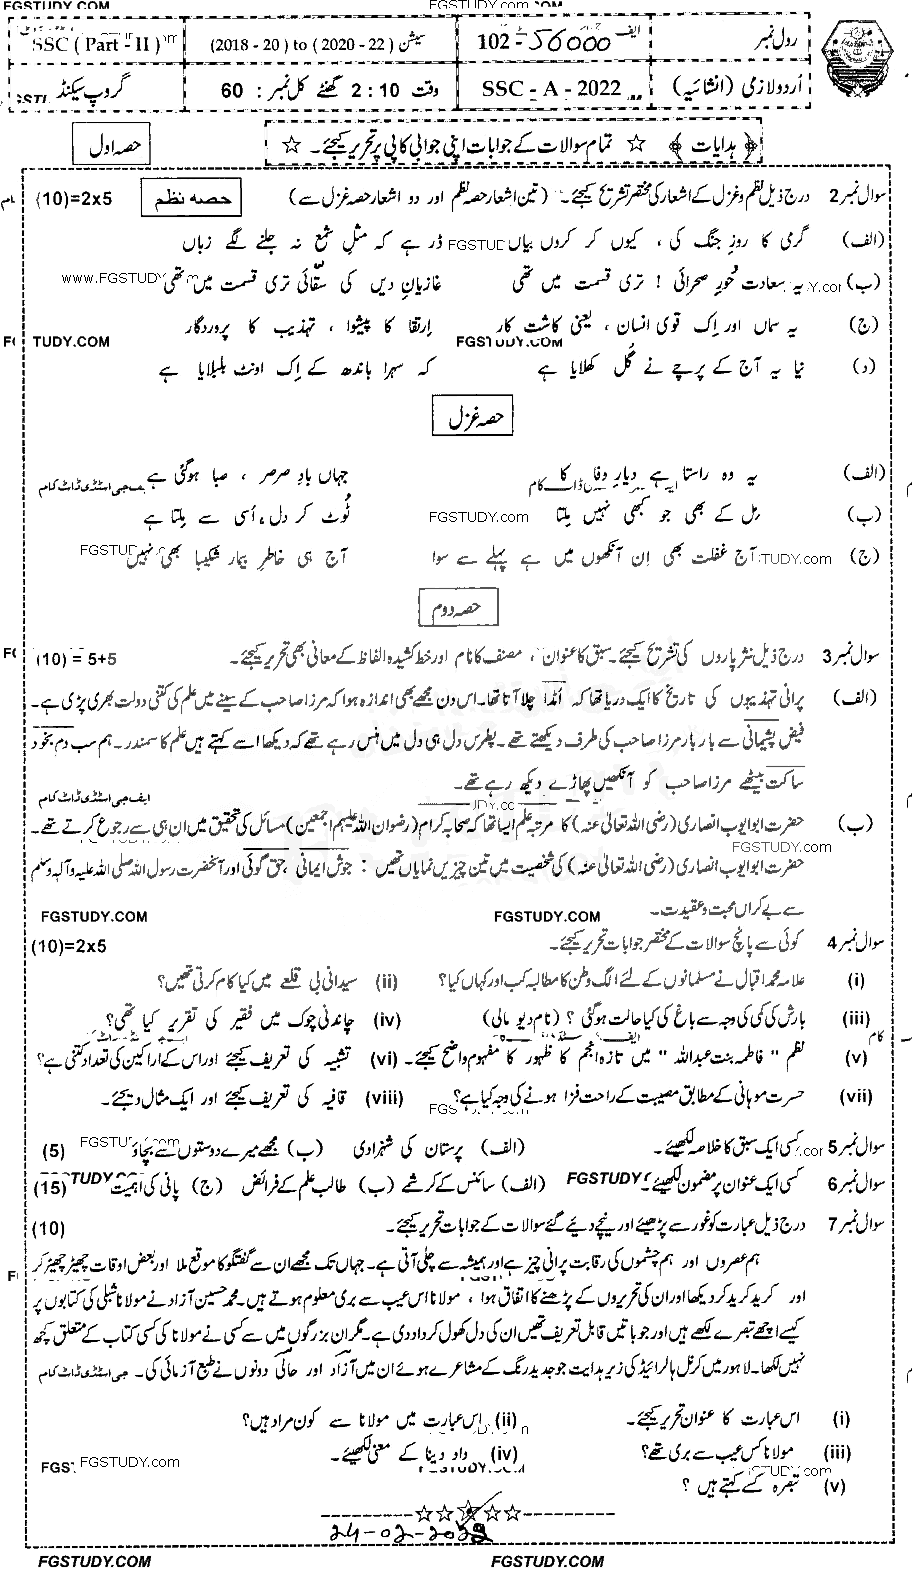 FGSTUDY.COM FGSTUDY.com
رول نمبر الف 56000 - 102 سیشن (2018 - 20) to (2020 - 22) SSC ( Part - II )
اُردو لازمی (انشائیہ) SSC - A - 2022 وقت 2 : 10 گھنٹے کل نمبر : 60 گروپ سیکنڈ
﴿ ہدایات ﴾ ☆ تمام سوالات کے جوابات اپنی جوابی کاپی پر تحریر کیجئے۔ ☆ حصہ اول
سوال نمبر 2 درج ذیل نظم و غزل کے اشعار کی مختصر تشریح کیجئے۔ (تین اشعار حصہ نظم اور دو اشعار حصہ غزل سے) حصہ نظم (10)=2x5
(الف) گرمی کا روزِ جنگ کی ، کیوں کر کروں بیاں ڈر ہے کہ مثلِ شمع نہ جلنے لگے زباں
(ب) یہ سعادت حُورِ صحرائی ! تری قسمت میں تھی غازیانِ دیں کی سقّائی تری قسمت میں تھی
(ج) یہ سماں اور اِک قوی انسان ، یعنی کاشت کار اِرتقا کا پیشوا ، تہذیب کا پروردگار
FGSTUDY.COM
(د) نیا یہ آج کے پرچے نے گُل کھلایا ہے کہ سہرا باندھ کے اِک اونٹ بلبلایا ہے
حصہ غزل
(الف) یہ وہ راستا ہے دیارِ وفا کا جہاں بادِ صرصر ، صبا ہوگئی ہے
(ب) مِل کے بھی جو کبھی نہیں ملتا ٹُوٹ کر دل ، اُسی سے ملتا ہے
(ج) آج غفلت بھی اِن آنکھوں میں ہے پہلے سے سوا آج ہی خاطرِ بیمار شکیبا بھی نہیں
حصہ دوم
سوال نمبر 3 درج ذیل نثر پاروں کی تشریح کیجئے۔ سبق کا عنوان ، مصنف کا نام اور خط کشیدہ الفاظ کے معانی بھی تحریر کیجئے۔ (10) = 5+5
(الف) پرانی تہذیبوں کی تاریخ کا ایک دریا تھا کہ اُمڈا چلا آتا تھا۔ اس دن مجھے بھی اندازہ ہوا کہ مرزا صاحب کے سینے میں علم کی کتنی دولت بھری پڑی ہے۔
فیض پشیمانی سے بار بار مرزا صاحب کی طرف دیکھتے تھے۔ پطرس دل ہی دل میں ہنس رہے تھے کہ دیکھا اسے کہتے ہیں علم کا سمندر۔ ہم سب دم بخود
ساکت بیٹھے مرزا صاحب کو آنکھیں پھاڑے دیکھ رہے تھے۔
(ب) حضرت ابوایوب انصاری (رضی اللہ تعالیٰ عنہ) کا مرتبہ علم ایسا تھا کہ صحابہ کرام (رضوان اللہ علیہم اجمعین) مسائل کی تحقیق میں ان ہی سے رجوع کرتے تھے۔
حضرت ابوایوب انصاری (رضی اللہ تعالیٰ عنہ) کی شخصیت میں تین چیزیں نمایاں تھیں : جوش ایمانی ،حق گوئی اور آنحضرت رسول اللہ صلی اللہ علیہ وآلہ وسلم
سے بے کراں محبت وعقیدت۔
FGSTUDY.COM FGSTUDY.COM
سوال نمبر 4 کوئی سے پانچ سوالات کے مختصر جوابات تحریر کیجئے۔ (10)=2x5
(i) علامہ محمد اقبال نے مسلمانوں کے لئے الگ وطن کا مطالبہ کب اور کہاں کیا؟ (ii) سیدانی بی قلعے میں کیا کام کرتی تھیں؟
(iii) بارش کی کمی کی وجہ سے باغ کی کیا حالت ہوگئی ؟ (نام دیو مالی) (iv) چاندنی چوک میں فقیر کی تقریر کیا تھی؟
(v) نظم " فاطمہ بنت عبداللہ " میں تازہ انجم کا ظہور کا مفہوم واضح کیجئے۔ (vi) تشبیہ کی تعریف کیجئے اور اس کے اراکین کی تعداد کتنی ہے؟
(vii) حسرت موہانی کے مطابق مصیبت کے راحت فزا ہونے کی وجہ کیا ہے؟ (viii) قافیہ کی تعریف کیجئے اور ایک مثال دیجئے۔
سوال نمبر 5 کسی ایک سبق کا خلاصہ لکھیئے۔ (الف) پرستان کی شہزادی (ب) مجھے میرے دوستوں سے بچاؤ (5)
سوال نمبر 6 کسی ایک عنوان پر مضمون لکھیئے۔ (الف) سائنس کے کرشمے (ب) طالب علم کے فرائض (ج) پانی کی اہمیت (15)
سوال نمبر 7 درج ذیل عبارت کو غور سے پڑھیئے اور نیچے دیئے گئے سوالات کے جوابات تحریر کیجئے۔ (10)
ہم عصروں اور ہم چشموں کی رقابت پرانی چیز ہے اور ہمیشہ سے چلی آتی ہے۔ جہاں تک مجھے ان سے گفتگو کا موقع ملا اور بعض اوقات چھیڑ چھیڑ کر
اور کرید کرید کر دیکھا اور ان کی تحریروں کے پڑھنے کا اتفاق ہوا ، مولانا اس عیب سے بری معلوم ہوتے ہیں۔ محمد حسین آزاد نے مولانا شبلی کی کتابوں پر
کیسے اچھے تبصرے لکھے ہیں اور جو باتیں قابل تعریف تھیں ان کی دل کھول کر داد دی ہے۔ مگر ان بزرگوں میں سے کسی نے مولانا کی کسی کتاب کے متعلق کچھ
نہیں لکھا۔ لاہور میں کرنل ہالرائیڈ کی زیر ہدایت جو جدید رنگ کے مشاعرے ہوئے ان میں آزاد اور حالی دونوں نے طبع آزمائی کی۔
(i) اس عبارت کا عنوان تحریر کیجئے۔ (ii) اس عبارت میں مولانا سے کون مراد ہیں؟
(iii) مولانا کس عیب سے بری تھے؟ (iv) داد دینا کے معنی لکھیئے۔
(v) تبصرہ کسے کہتے ہیں ؟
☆☆☆☆☆
24-02-2022
FGSTUDY.COM FGSTUDY.COM